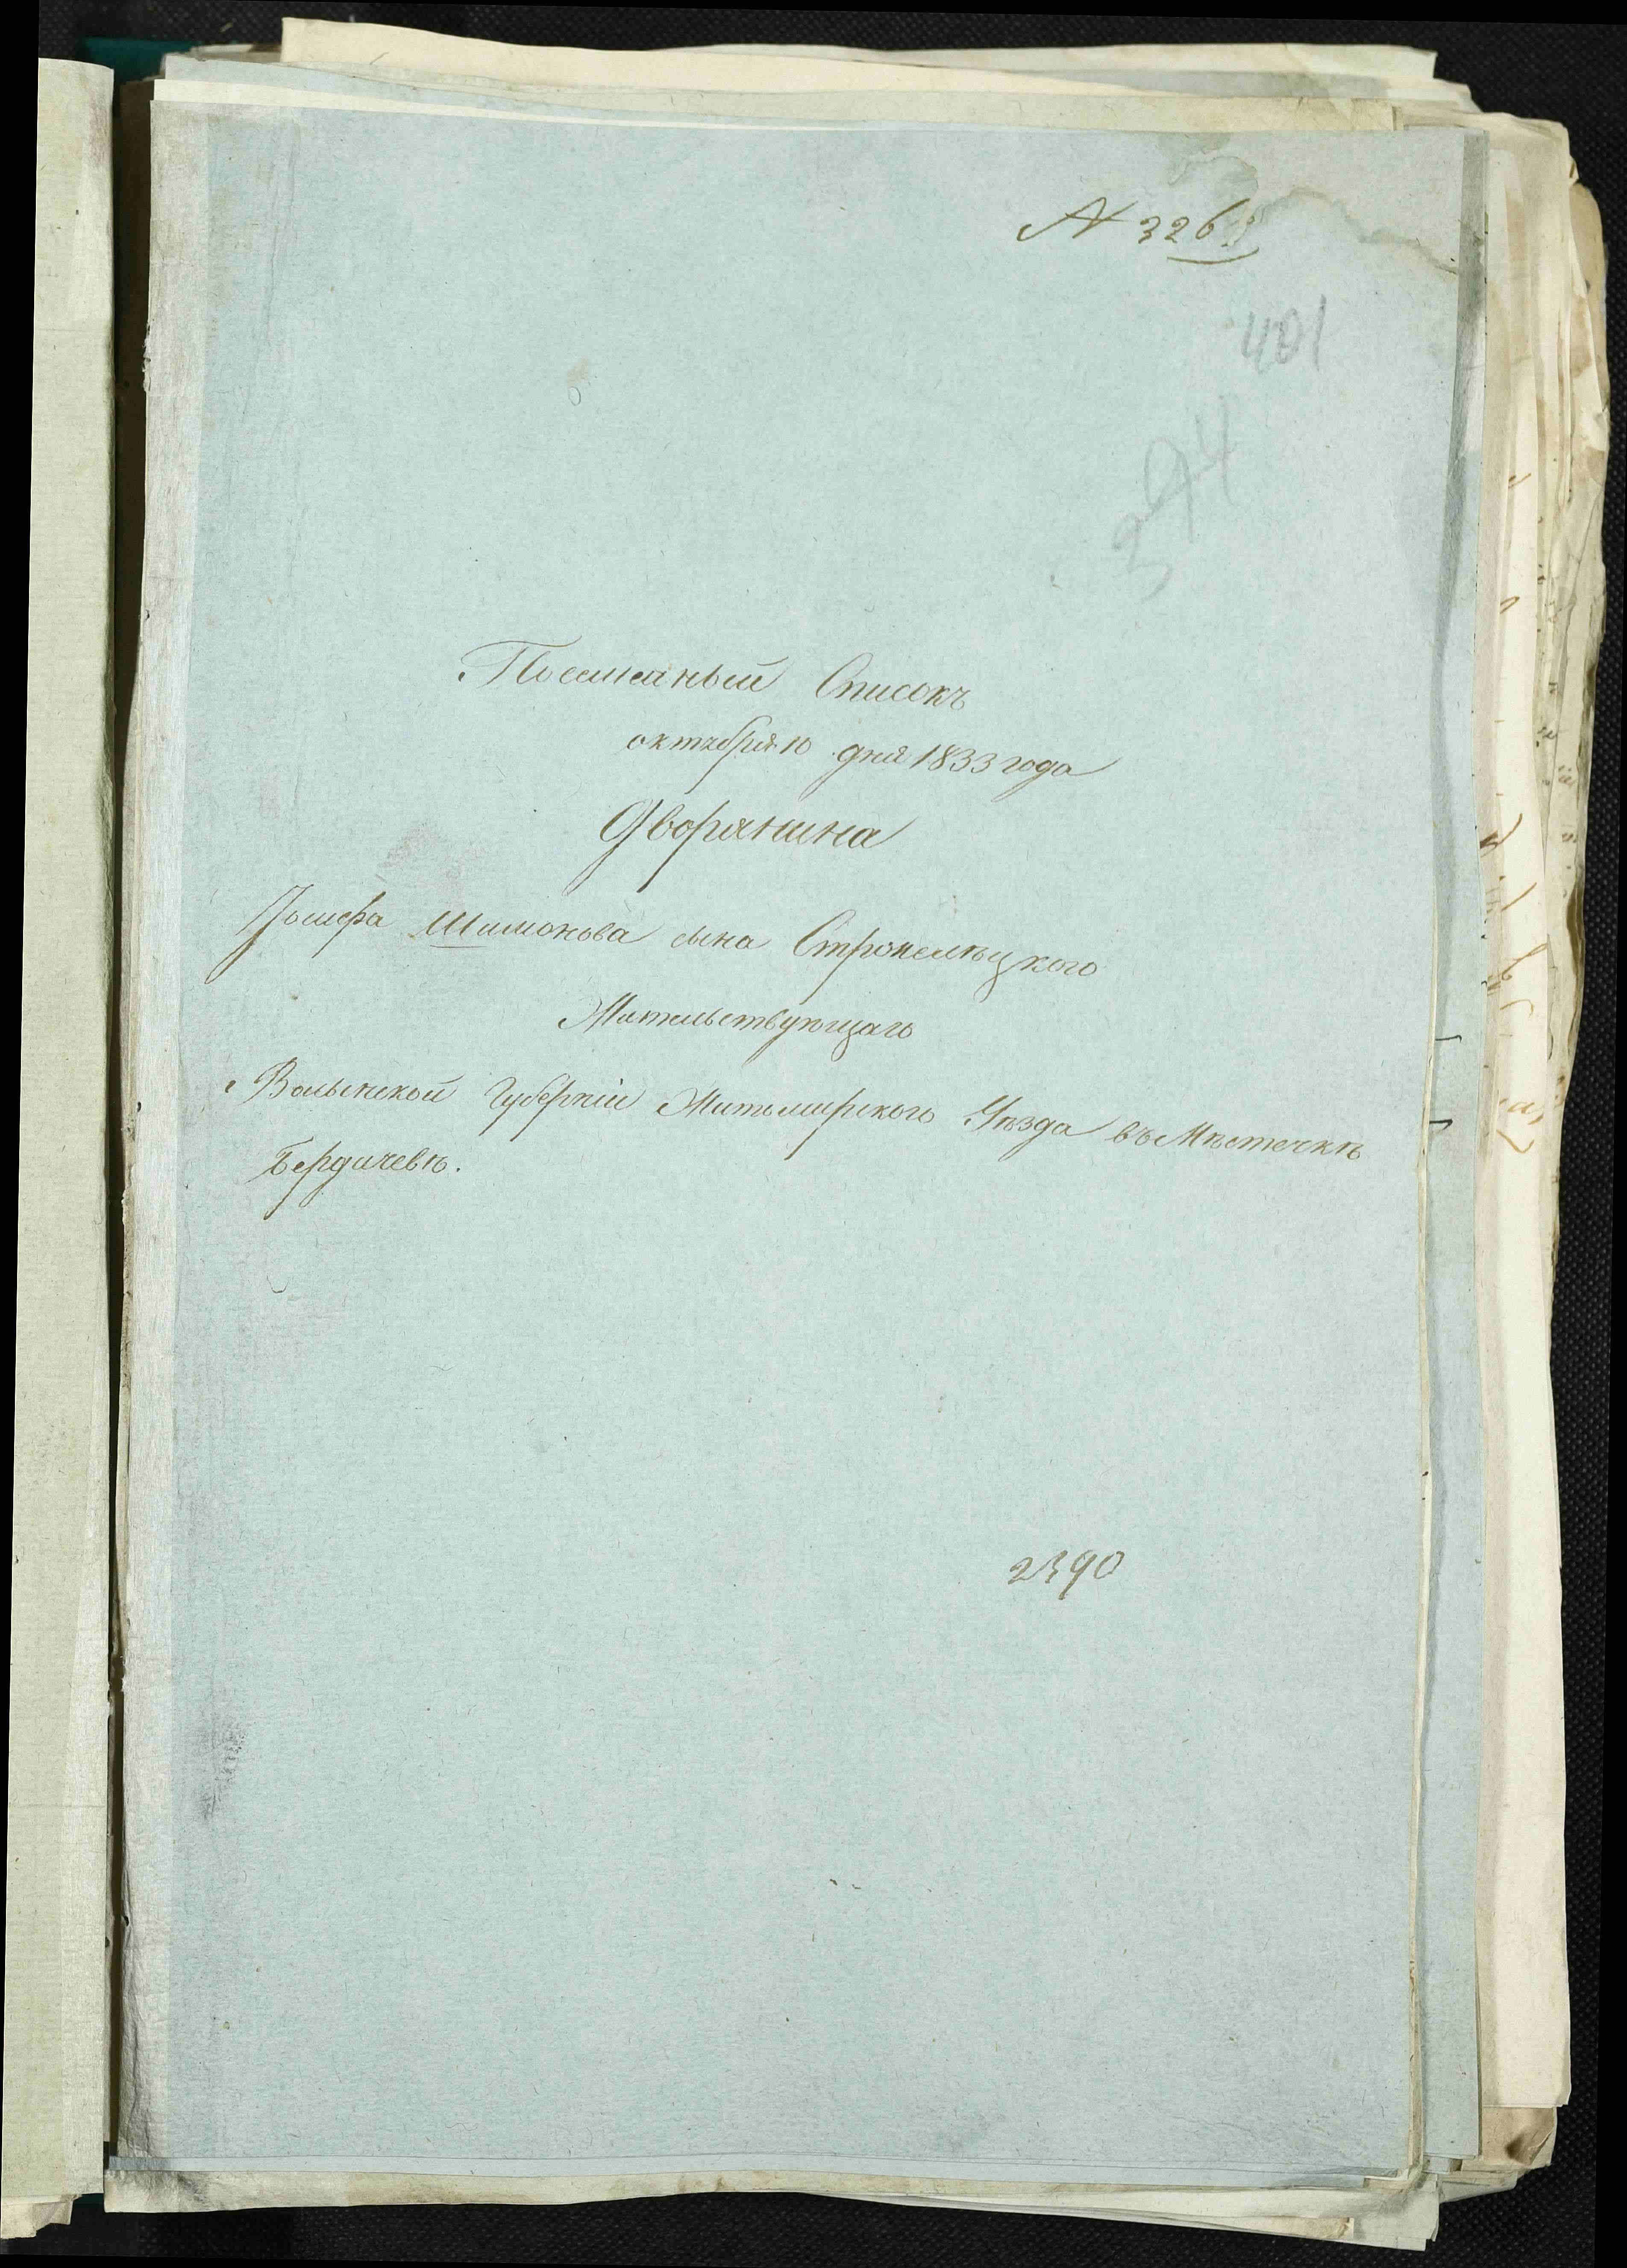 № 326
401
394
Посемейный Списокъ
октября 10 дня 1833 года
Дворянина
Іосифа Шимонова сына Стропелѣцкого
Жительствующаго
Волынской Губерніи Житомирского Уѣзда въ Мѣстечкѣ
Бердичевѣ.
2390